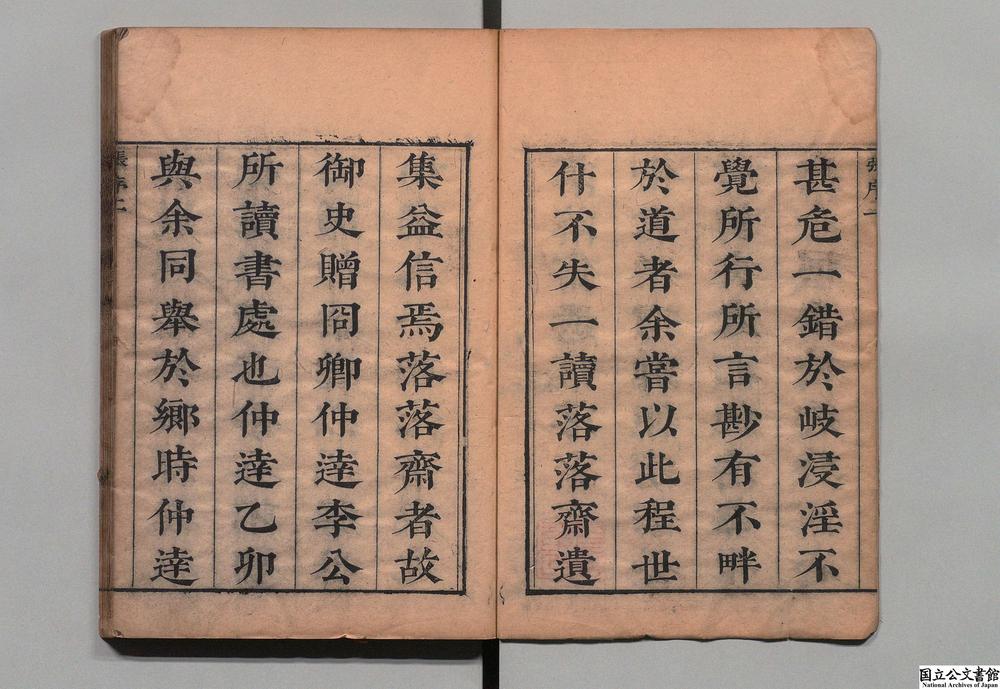 張序一
甚危一錯於岐浸淫不
覺所行所言尠有不畔
於道者余嘗以此程世
什不失一讀落落齋遺
集益信焉落落齋者故
御史贈冏卿仲逹李公
所讀書處也仲逹乙卯
與余同舉於鄉時仲逹
張序二
国立公文書館
National Archives of Japan